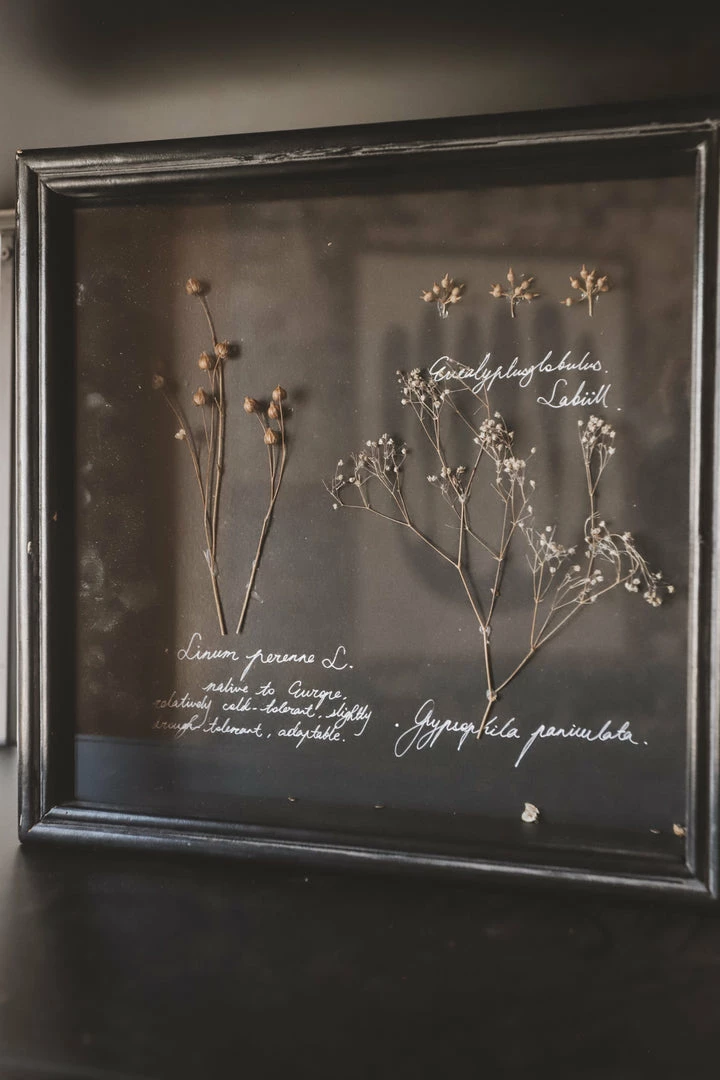 Eucalyptus globulus.
Labill.
Linum perenne L.
native to Europe,
relatively cold-tolerant, slightly
drough-tolerant, adaptable.
. Gypsophila paniculata.